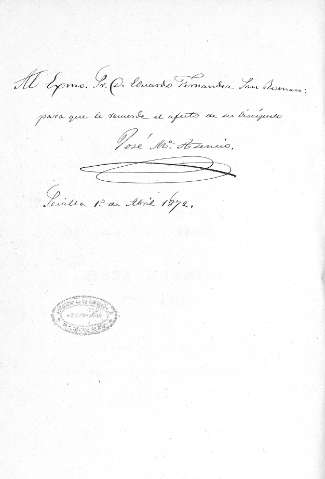 Al Exmo. Sr. D. Eduardo Fernandez San Roman:
para que le recuerde el afecto de su discípulo
José Mª. Asensio.
Sevilla 1º de Abril 1872.